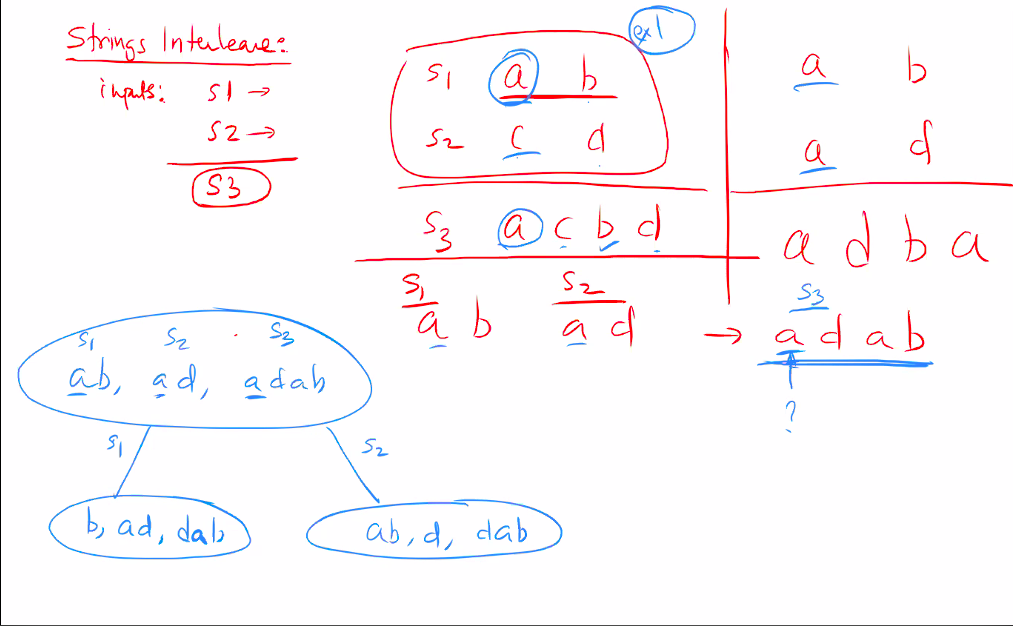 Strings Interleave:
inputs: S1 →
S2 →
S3
ex1
S1 a b
S2 c d
S3 a c b d
a b
a d
a d b a
S1 S2
a b a d → a d a b
S3
?
S1 S2 S3
ab, ad, adab
S1 S2
b, ad, dab
ab, d, dab